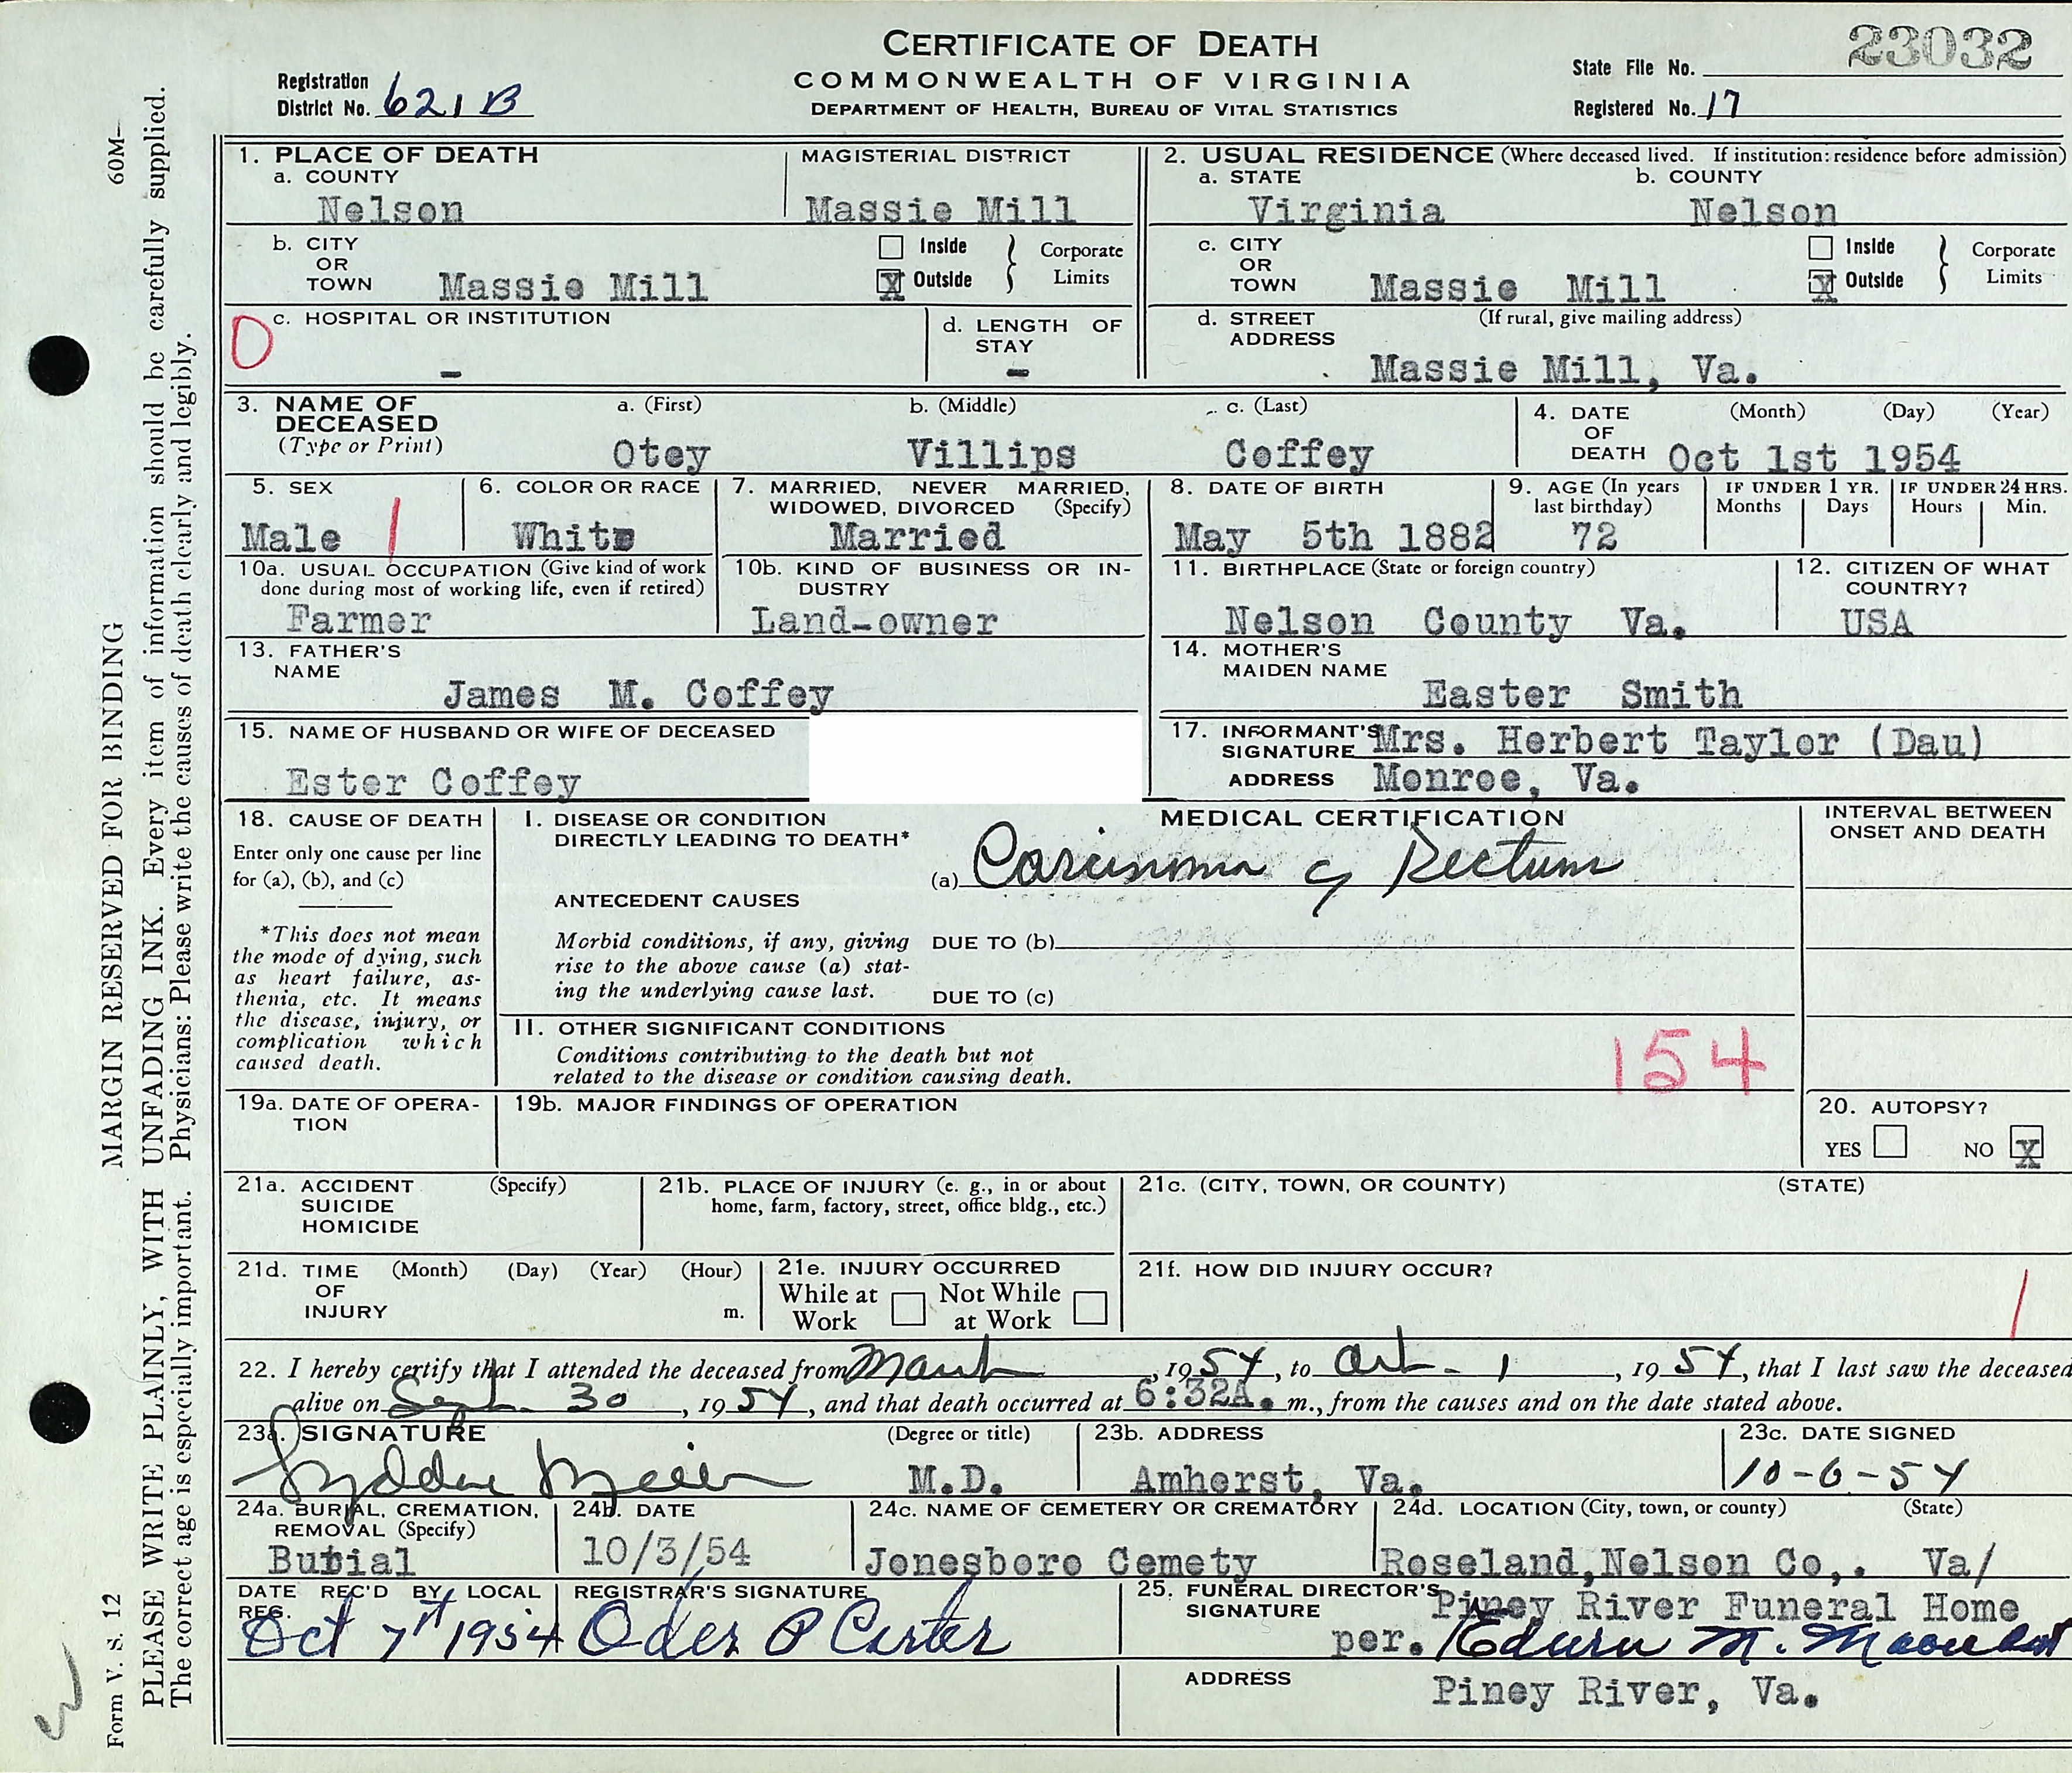 CERTIFICATE OF DEATH
COMMONWEALTH OF VIRGINIA
DEPARTMENT OF HEALTH, BUREAU OF VITAL STATISTICS
Registration District No. 621B
State File No. 23032
Registered No. 17
60M—
MARGIN RESERVED FOR BINDING
PLEASE WRITE PLAINLY, WITH UNFADING INK. Every item of information should be carefully supplied.
The correct age is especially important. Physicians: Please write the causes of death clearly and legibly.
Form V. S. 12
1. PLACE OF DEATH
a. COUNTY
Nelson
MAGISTERIAL DISTRICT
Massie Mill
b. CITY OR TOWN Massie Mill
Inside
X Outside
Corporate Limits
c. HOSPITAL OR INSTITUTION
-
0
d. LENGTH OF STAY
-
2. USUAL RESIDENCE (Where deceased lived. If institution: residence before admission)
a. STATE
Virginia
b. COUNTY
Nelson
c. CITY OR TOWN Massie Mill
Inside
X Outside
Corporate Limits
d. STREET ADDRESS
(If rural, give mailing address)
Massie Mill, Va.
3. NAME OF DECEASED
(Type or Print)
a. (First)
Otey
b. (Middle)
Villips
c. (Last)
Coffey
4. DATE OF DEATH
(Month) (Day) (Year)
Oct 1st 1954
5. SEX
Male 1
6. COLOR OR RACE
White
7. MARRIED, NEVER MARRIED, WIDOWED, DIVORCED (Specify)
Married
8. DATE OF BIRTH
May 5th 1882
9. AGE (In years last birthday)
72
IF UNDER 1 YR.
Months Days
IF UNDER 24 HRS.
Hours Min.
10a. USUAL OCCUPATION (Give kind of work done during most of working life, even if retired)
Farmer
10b. KIND OF BUSINESS OR INDUSTRY
Land-owner
11. BIRTHPLACE (State or foreign country)
Nelson County Va.
12. CITIZEN OF WHAT COUNTRY?
USA
13. FATHER'S NAME
James M. Coffey
14. MOTHER'S MAIDEN NAME
Easter Smith
15. NAME OF HUSBAND OR WIFE OF DECEASED
Ester Coffey
17. INFORMANT'S SIGNATURE Mrs. Herbert Taylor (Dau)
ADDRESS Monroe, Va.
18. CAUSE OF DEATH
Enter only one cause per line for (a), (b), and (c)
*This does not mean the mode of dying, such as heart failure, asthenia, etc. It means the disease, injury, or complication which caused death.
MEDICAL CERTIFICATION
INTERVAL BETWEEN ONSET AND DEATH
I. DISEASE OR CONDITION DIRECTLY LEADING TO DEATH*
(a) Carcinoma of Rectum
ANTECEDENT CAUSES
Morbid conditions, if any, giving rise to the above cause (a) stating the underlying cause last.
DUE TO (b)
DUE TO (c)
II. OTHER SIGNIFICANT CONDITIONS
Conditions contributing to the death but not related to the disease or condition causing death.
154
19a. DATE OF OPERATION
19b. MAJOR FINDINGS OF OPERATION
20. AUTOPSY?
YES NO X
21a. ACCIDENT SUICIDE HOMICIDE
(Specify)
21b. PLACE OF INJURY (e. g., in or about home, farm, factory, street, office bldg., etc.)
21c. (CITY, TOWN, OR COUNTY) (STATE)
21d. TIME OF INJURY
(Month) (Day) (Year) (Hour)
m.
21e. INJURY OCCURRED
While at Work
Not While at Work
21f. HOW DID INJURY OCCUR?
1
22. I hereby certify that I attended the deceased from March, 1954, to Oct. 1, 1954, that I last saw the deceased
alive on Sept. 30, 1954, and that death occurred at 6:32A. m., from the causes and on the date stated above.
23a. SIGNATURE
(Degree or title)
M.D.
23b. ADDRESS
Amherst, Va.
23c. DATE SIGNED
10-6-54
24a. BURIAL, CREMATION, REMOVAL (Specify)
Burial
24b. DATE
10/3/54
24c. NAME OF CEMETERY OR CREMATORY
Jonesboro Cemety
24d. LOCATION (City, town, or county) (State)
Roseland,Nelson Co,. Va/
DATE REC'D BY LOCAL REG.
Oct 7th 1954
REGISTRAR'S SIGNATURE
Odes P Carter
25. FUNERAL DIRECTOR'S SIGNATURE
Piney River Funeral Home
per.
ADDRESS
Piney River, Va.